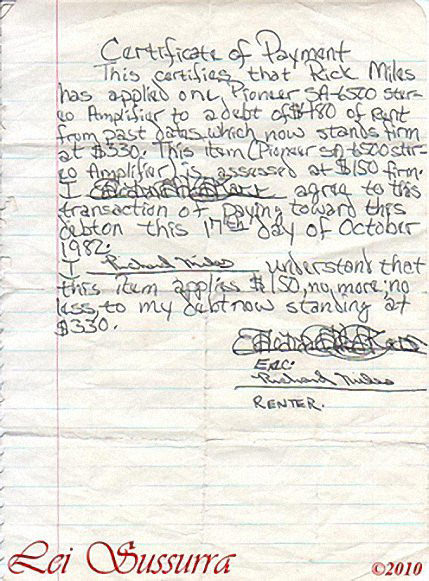 Certificate of Payment
This certifies that Rick Miles
has applied one, Pioneer SA-6500 ster-
eo Amplifier to a debt of $480 of Rent
from past dates which now stands firm
at $330. This item (Pioneer SA 6500 ster-
eo Amplifier) is assessed at $150 firm.
I agree to this
transaction of paying toward this
debt on this 17th day of October
1982.
I Richard Miles understand that
this item applies $150, no more; no
less, to my debt now standing at
$330.
Richard Miles
RENTER.
Lei Sussurra ©2010